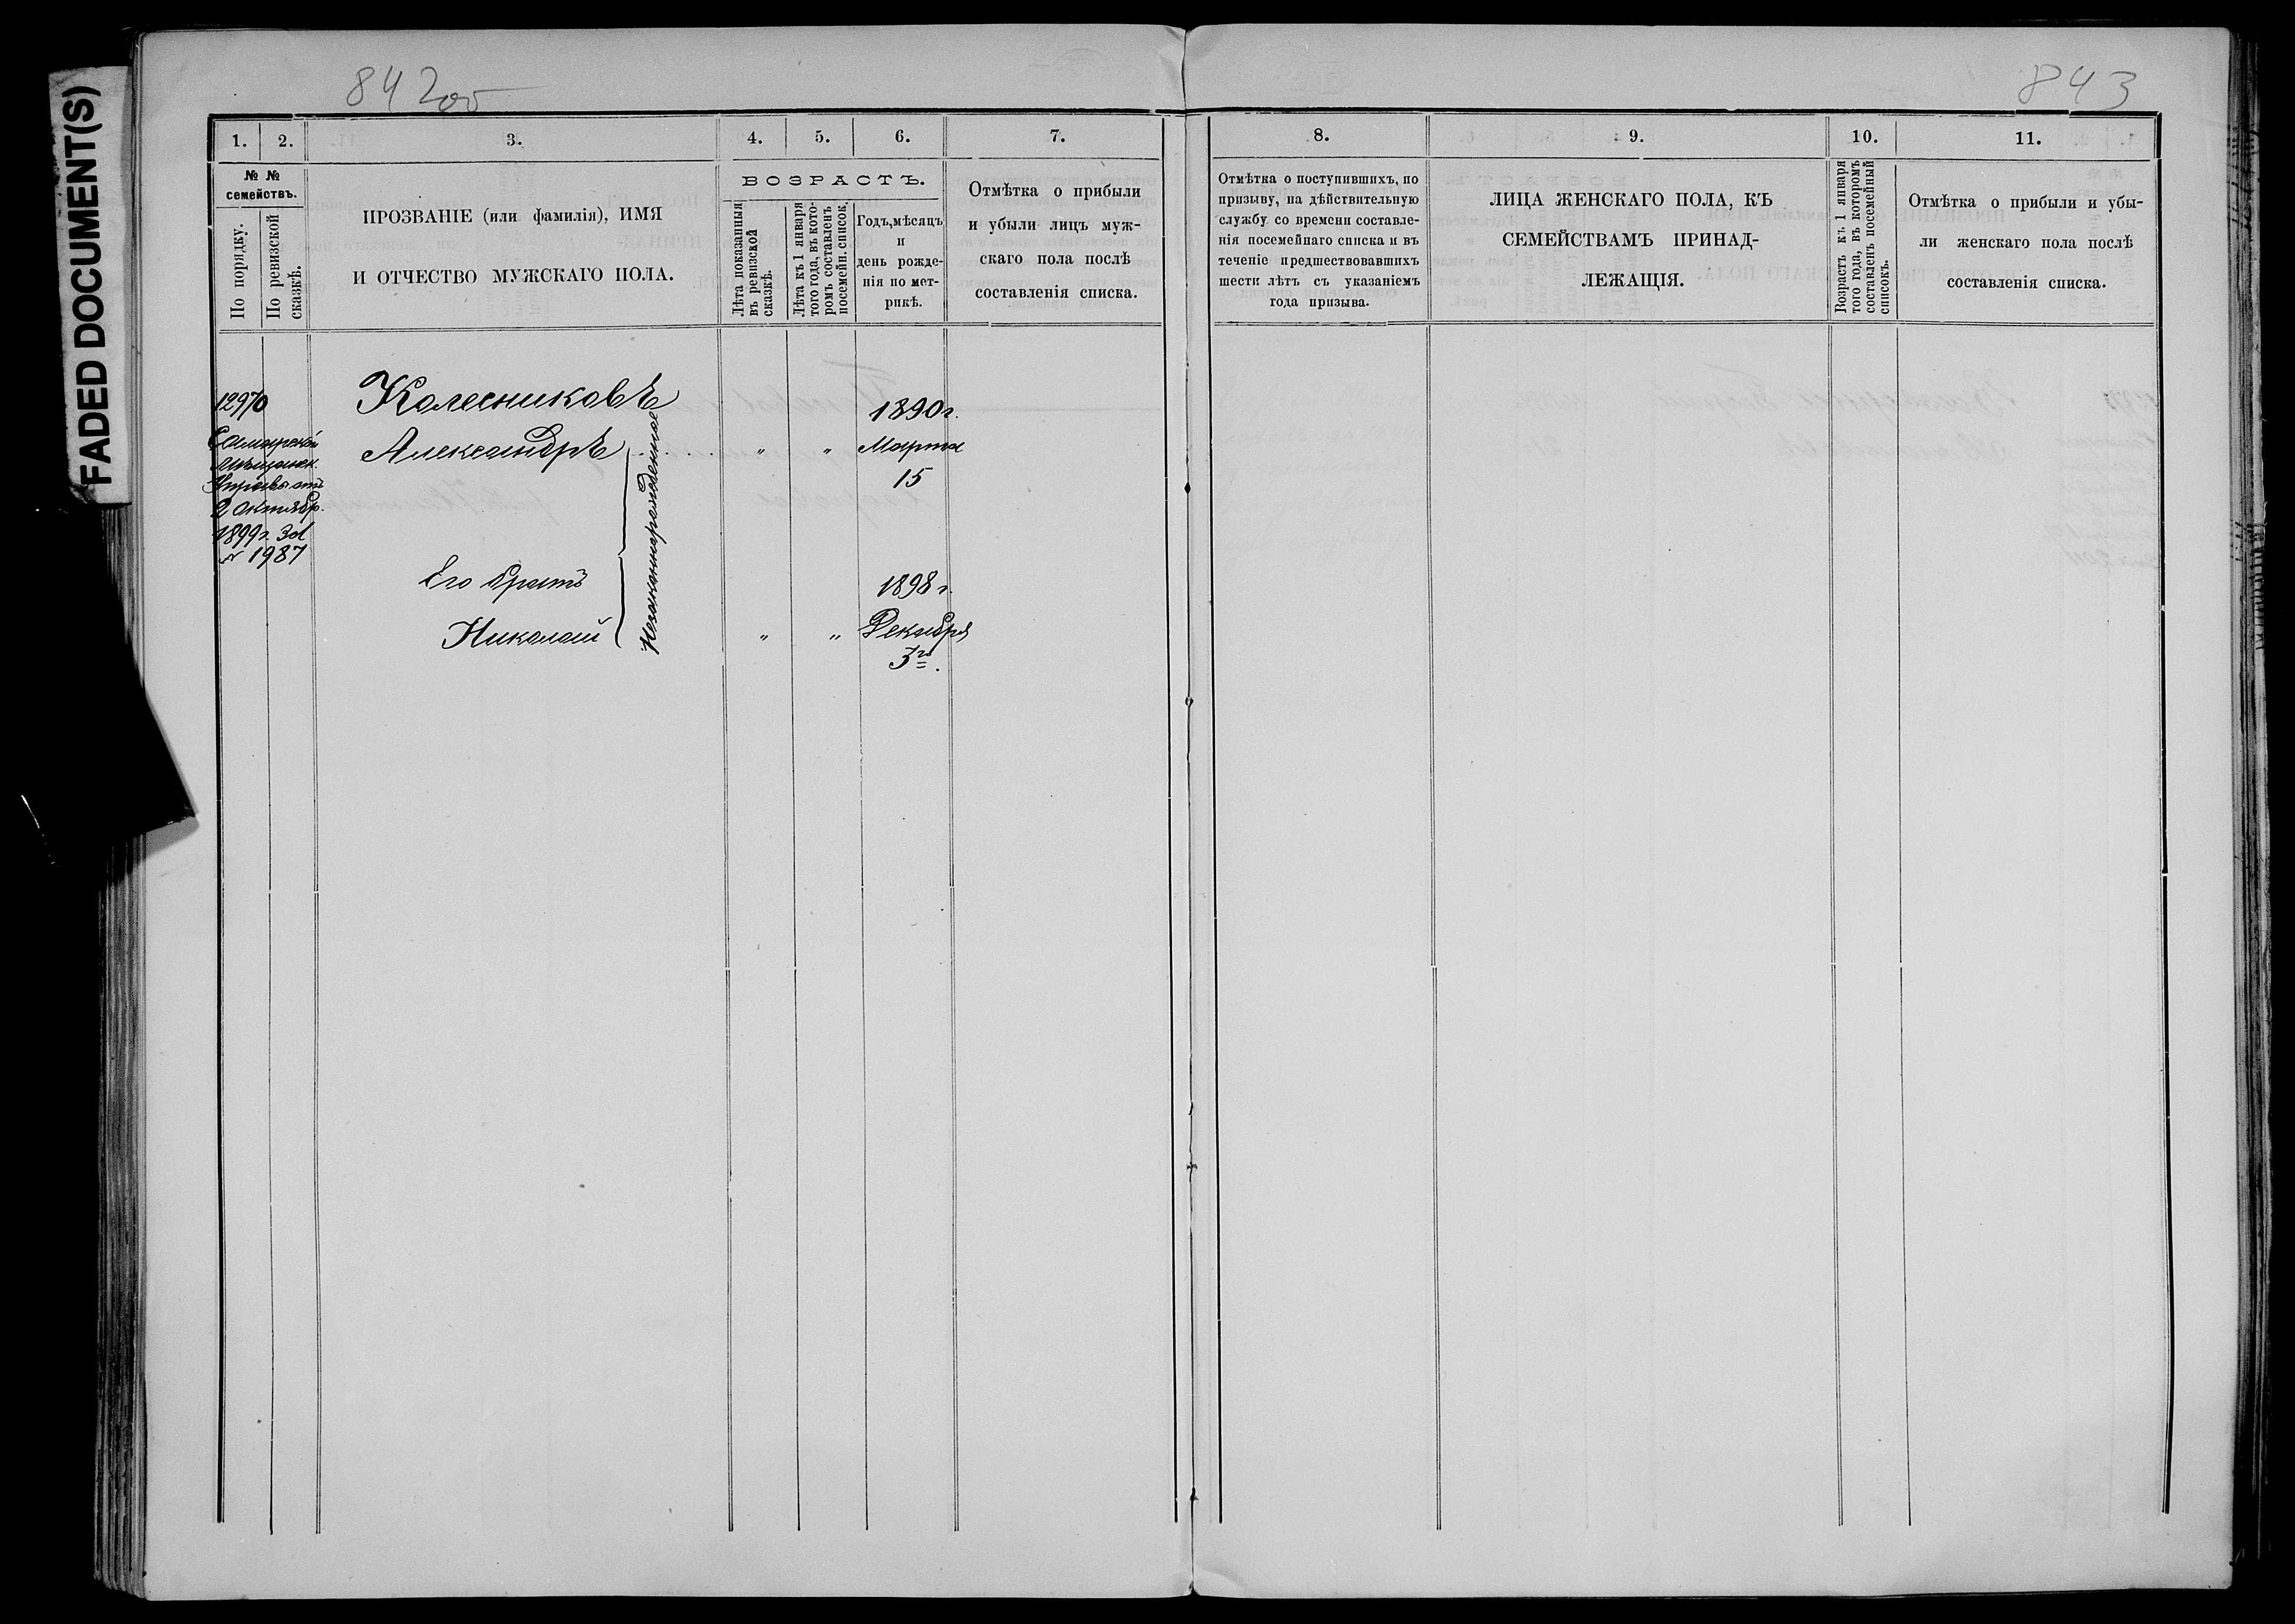 FADED DOCUMENT(S)
842об
843
1.
2.
3.
4.
5.
6.
7.
8.
9.
10.
11.
№ №
семействъ.
По порядку.
По ревизской
сказкѣ.
ПРОЗВАНІЕ (или фамилія), ИМЯ
И ОТЧЕСТВО МУЖСКАГО ПОЛА.
ВОЗРАСТЪ.
Лѣта показанныя
въ ревизской
сказкѣ.
Лѣта къ 1 января
того года, въ кото-
ромъ составленъ
посемейн. список.
Годъ, мѣсяцъ
и
день рожде-
нія по мет-
рикѣ.
Отмѣтка о прибыли
и убыли лицъ муж-
скаго пола послѣ
составленія списка.
Отмѣтка о поступившихъ, по
призыву, на дѣйствительную
службу со времени составле-
нія посемейнаго списка и въ
теченіе предшествовавшихъ
шести лѣтъ съ указаніемъ
года призыва.
ЛИЦА ЖЕНСКАГО ПОЛА, КЪ
СЕМЕЙСТВАМЪ ПРИНАД-
ЛЕЖАЩІЯ.
Возрастъ къ 1 января
того года, въ которомъ
составленъ посемейный
списокъ.
Отмѣтка о прибыли и убы-
ли женскаго пола послѣ
составленія списка.
12970
Самарской
Мѣщанск.
Управы отъ
2 Октябр.
1899г. За
№ 1987
Колесниковъ
Александръ . . . . . " "
1890г.
Марта
15
Незаконнорожденные
Его братъ
Николай " "
1898 г.
Декабря
3го.